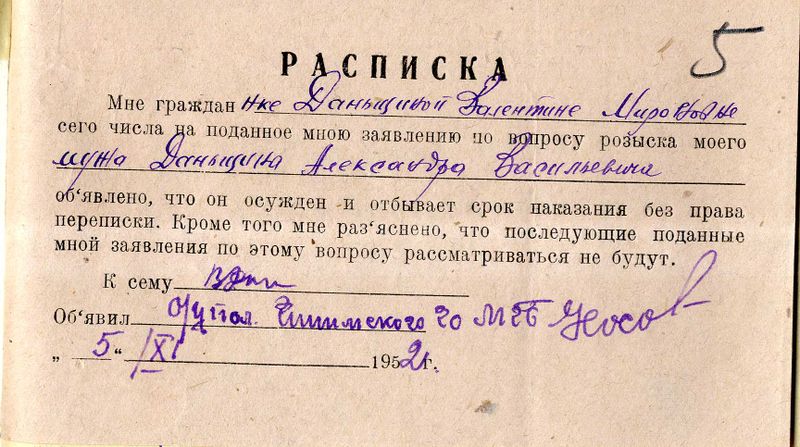 5
РАСПИСКА
Мне граждан нке Даньщиной Валентине Мироновне
сего числа на поданное мною заявлению по вопросу розыска моего
мужа Даньщина Александра Васильевича
об‘явлено, что он осужден и отбывает срок наказания без права
переписки. Кроме того мне раз‘яснено, что последующие поданные
мной заявления по этому вопросу рассматриваться не будут.
К сему
Об‘явил О/уПол. Ишимского ГО МГБ Носов
„ 5 “ /XI 1952г.